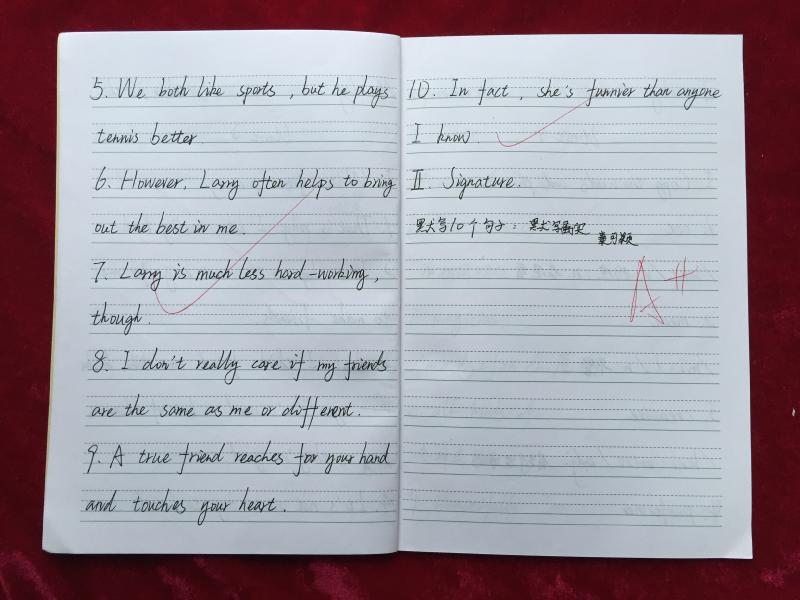 5. We both like sports, but he plays
tennis better.
6. However, Larry often helps to bring
out the best in me.
7. Larry is much less hard-working,
though.
8. I don't really care if my friends
are the same as me or different.
9. A true friend reaches for your hand
and touches your heart.
10. In fact, she's funnier than anyone
I know.
II. Signature.
默写10个句子:默写
A+